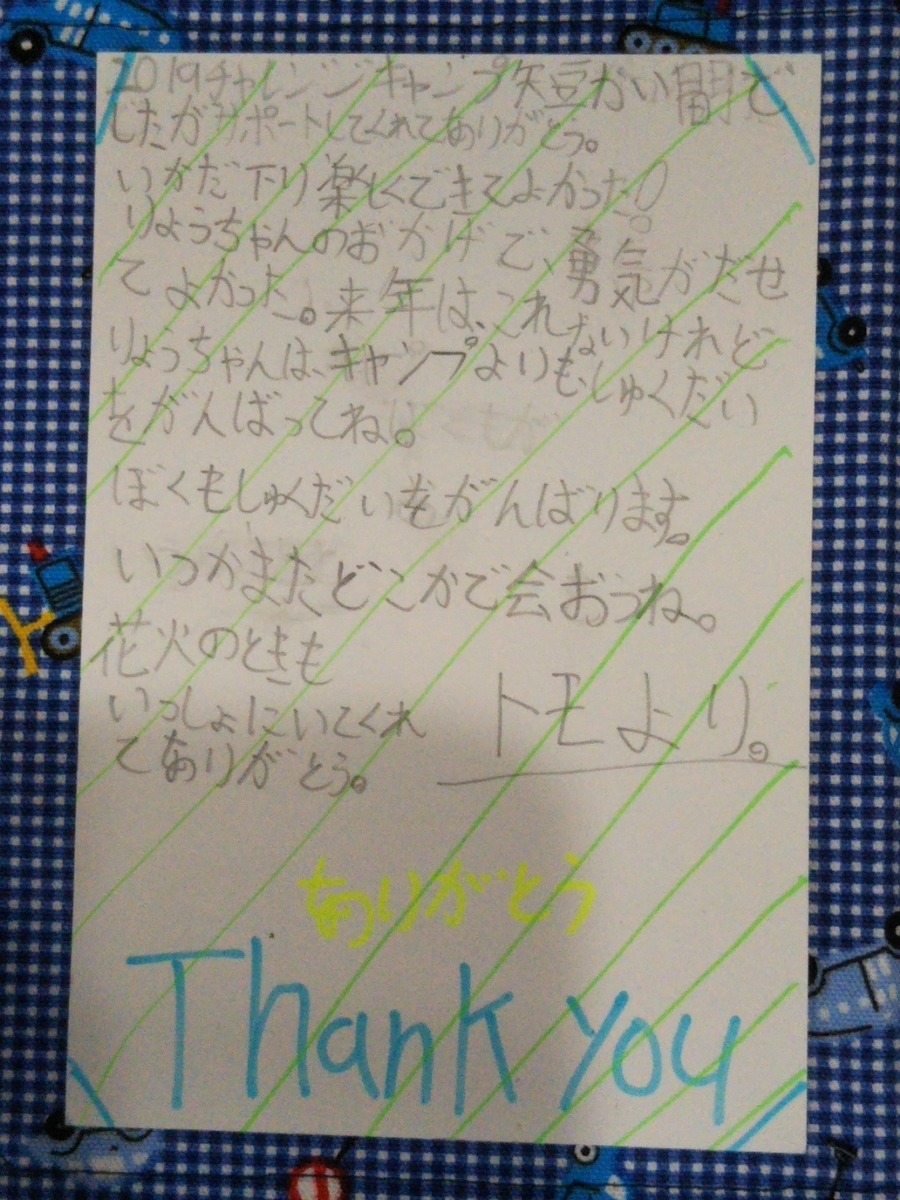 2019チャレンジキャンプ矢豆かい間で
したがサポートしてくれてありがとう。
いかだ下り楽しくできてよかった!
りょうちゃんのおかげで、勇気がだせ
てよかった。来年は、これないけれど
りょうちゃんは、キャンプよりも、しゅくだい
をがんばってね。
ぼくもしゅくだいをがんばります。
いつかまたどこかで会おうね。
花火のときも
いっしょにいてくれ
てありがとう。
トモより。
ありがとう
Thank you